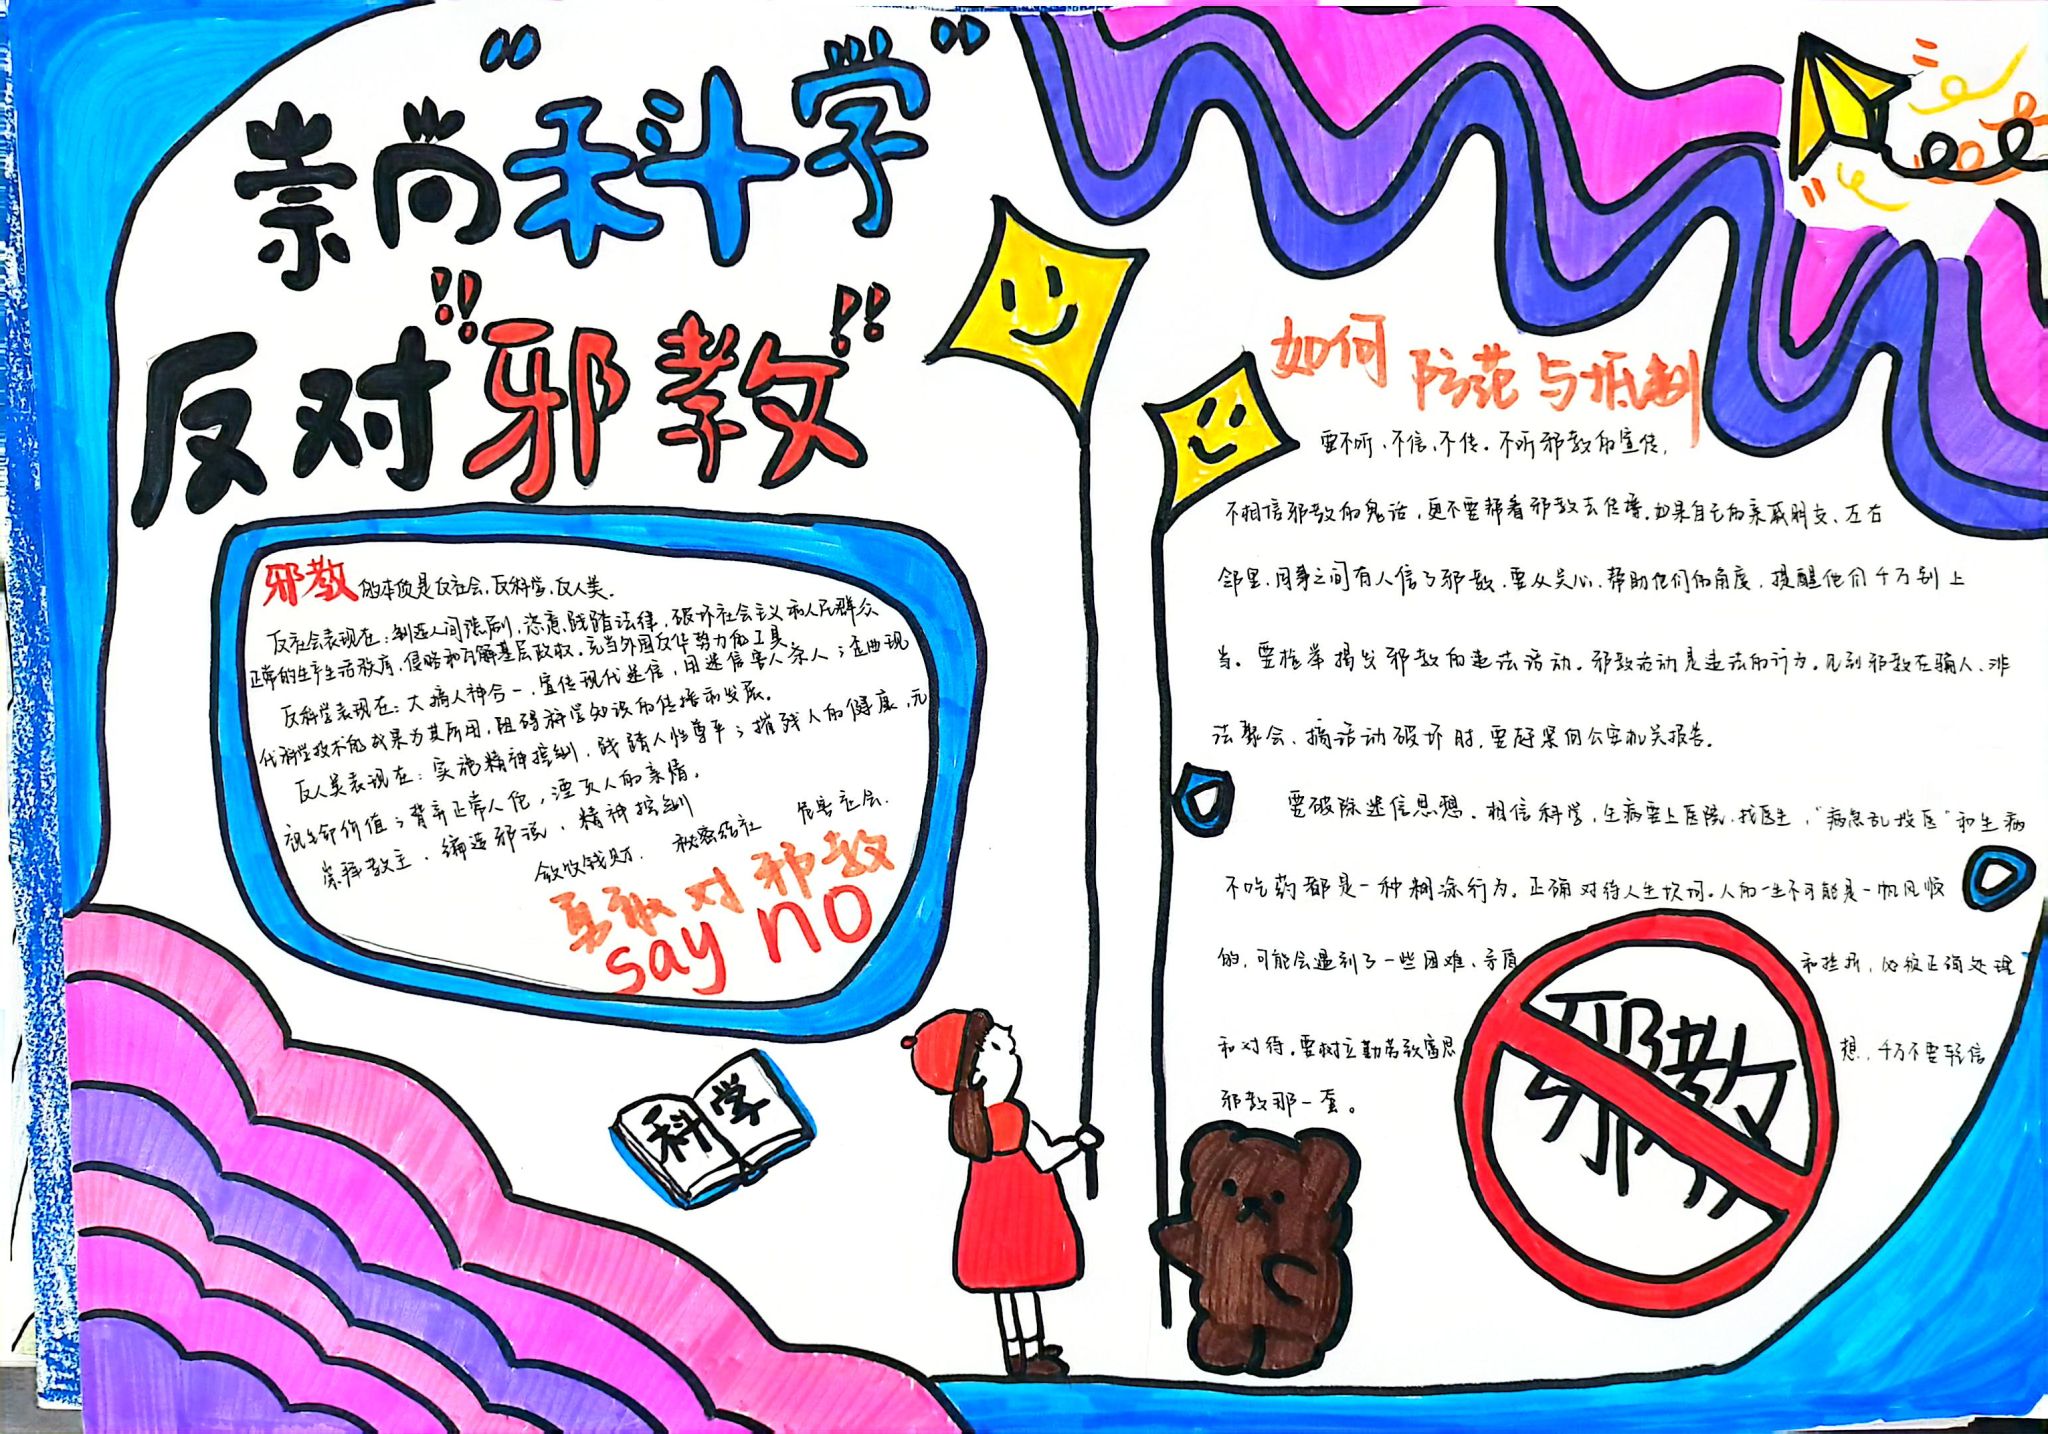 崇尚"科学"
反对"邪教"
邪教的本质是反社会,反科学,反人类.
反社会表现在:制造人间悲剧,恣意践踏法律,破坏社会主义和人民群众
正常的生产生活秩序,侵蚀和瓦解基层政权,充当外国反华势力的工具
反科学表现在:大搞人神合一,宣传现代迷信,用迷信害人杀人;歪曲现
代科学技术的成果为其所用,阻碍科学知识的传播和发展.
反人类表现在:实施精神控制,践踏人性尊严;摧残人的健康,无
视生命价值;背弃正常人伦,湮灭人的亲情.
崇拜教主.编造邪说.精神控制
敛收钱财.秘密结社 危害社会.
勇敢对邪教
say no
科学
如何防范与抵制
要不听、不信、不传。不听邪教的宣传,
不相信邪教的鬼话,更不要帮着邪教去传播.如果自己的亲戚朋友、左右
邻里、同事之间有人信了邪教,要从关心、帮助他们的角度,提醒他们千万别上
当。要检举揭发邪教的违法活动。邪教活动是违法的行为。见到邪教在骗人、非
法聚会、搞活动破坏时,要赶紧向公安机关报告。
要破除迷信思想。相信科学,生病要上医院,找医生,"病急乱投医"和生病
不吃药都是一种糊涂行为。正确对待人生坎坷。人的一生不可能是一帆风顺
的,可能会遇到了一些困难、矛盾和挫折,必须正确处理
和对待。要树立勤劳致富思想,千万不要轻信
邪教那一套。
邪教